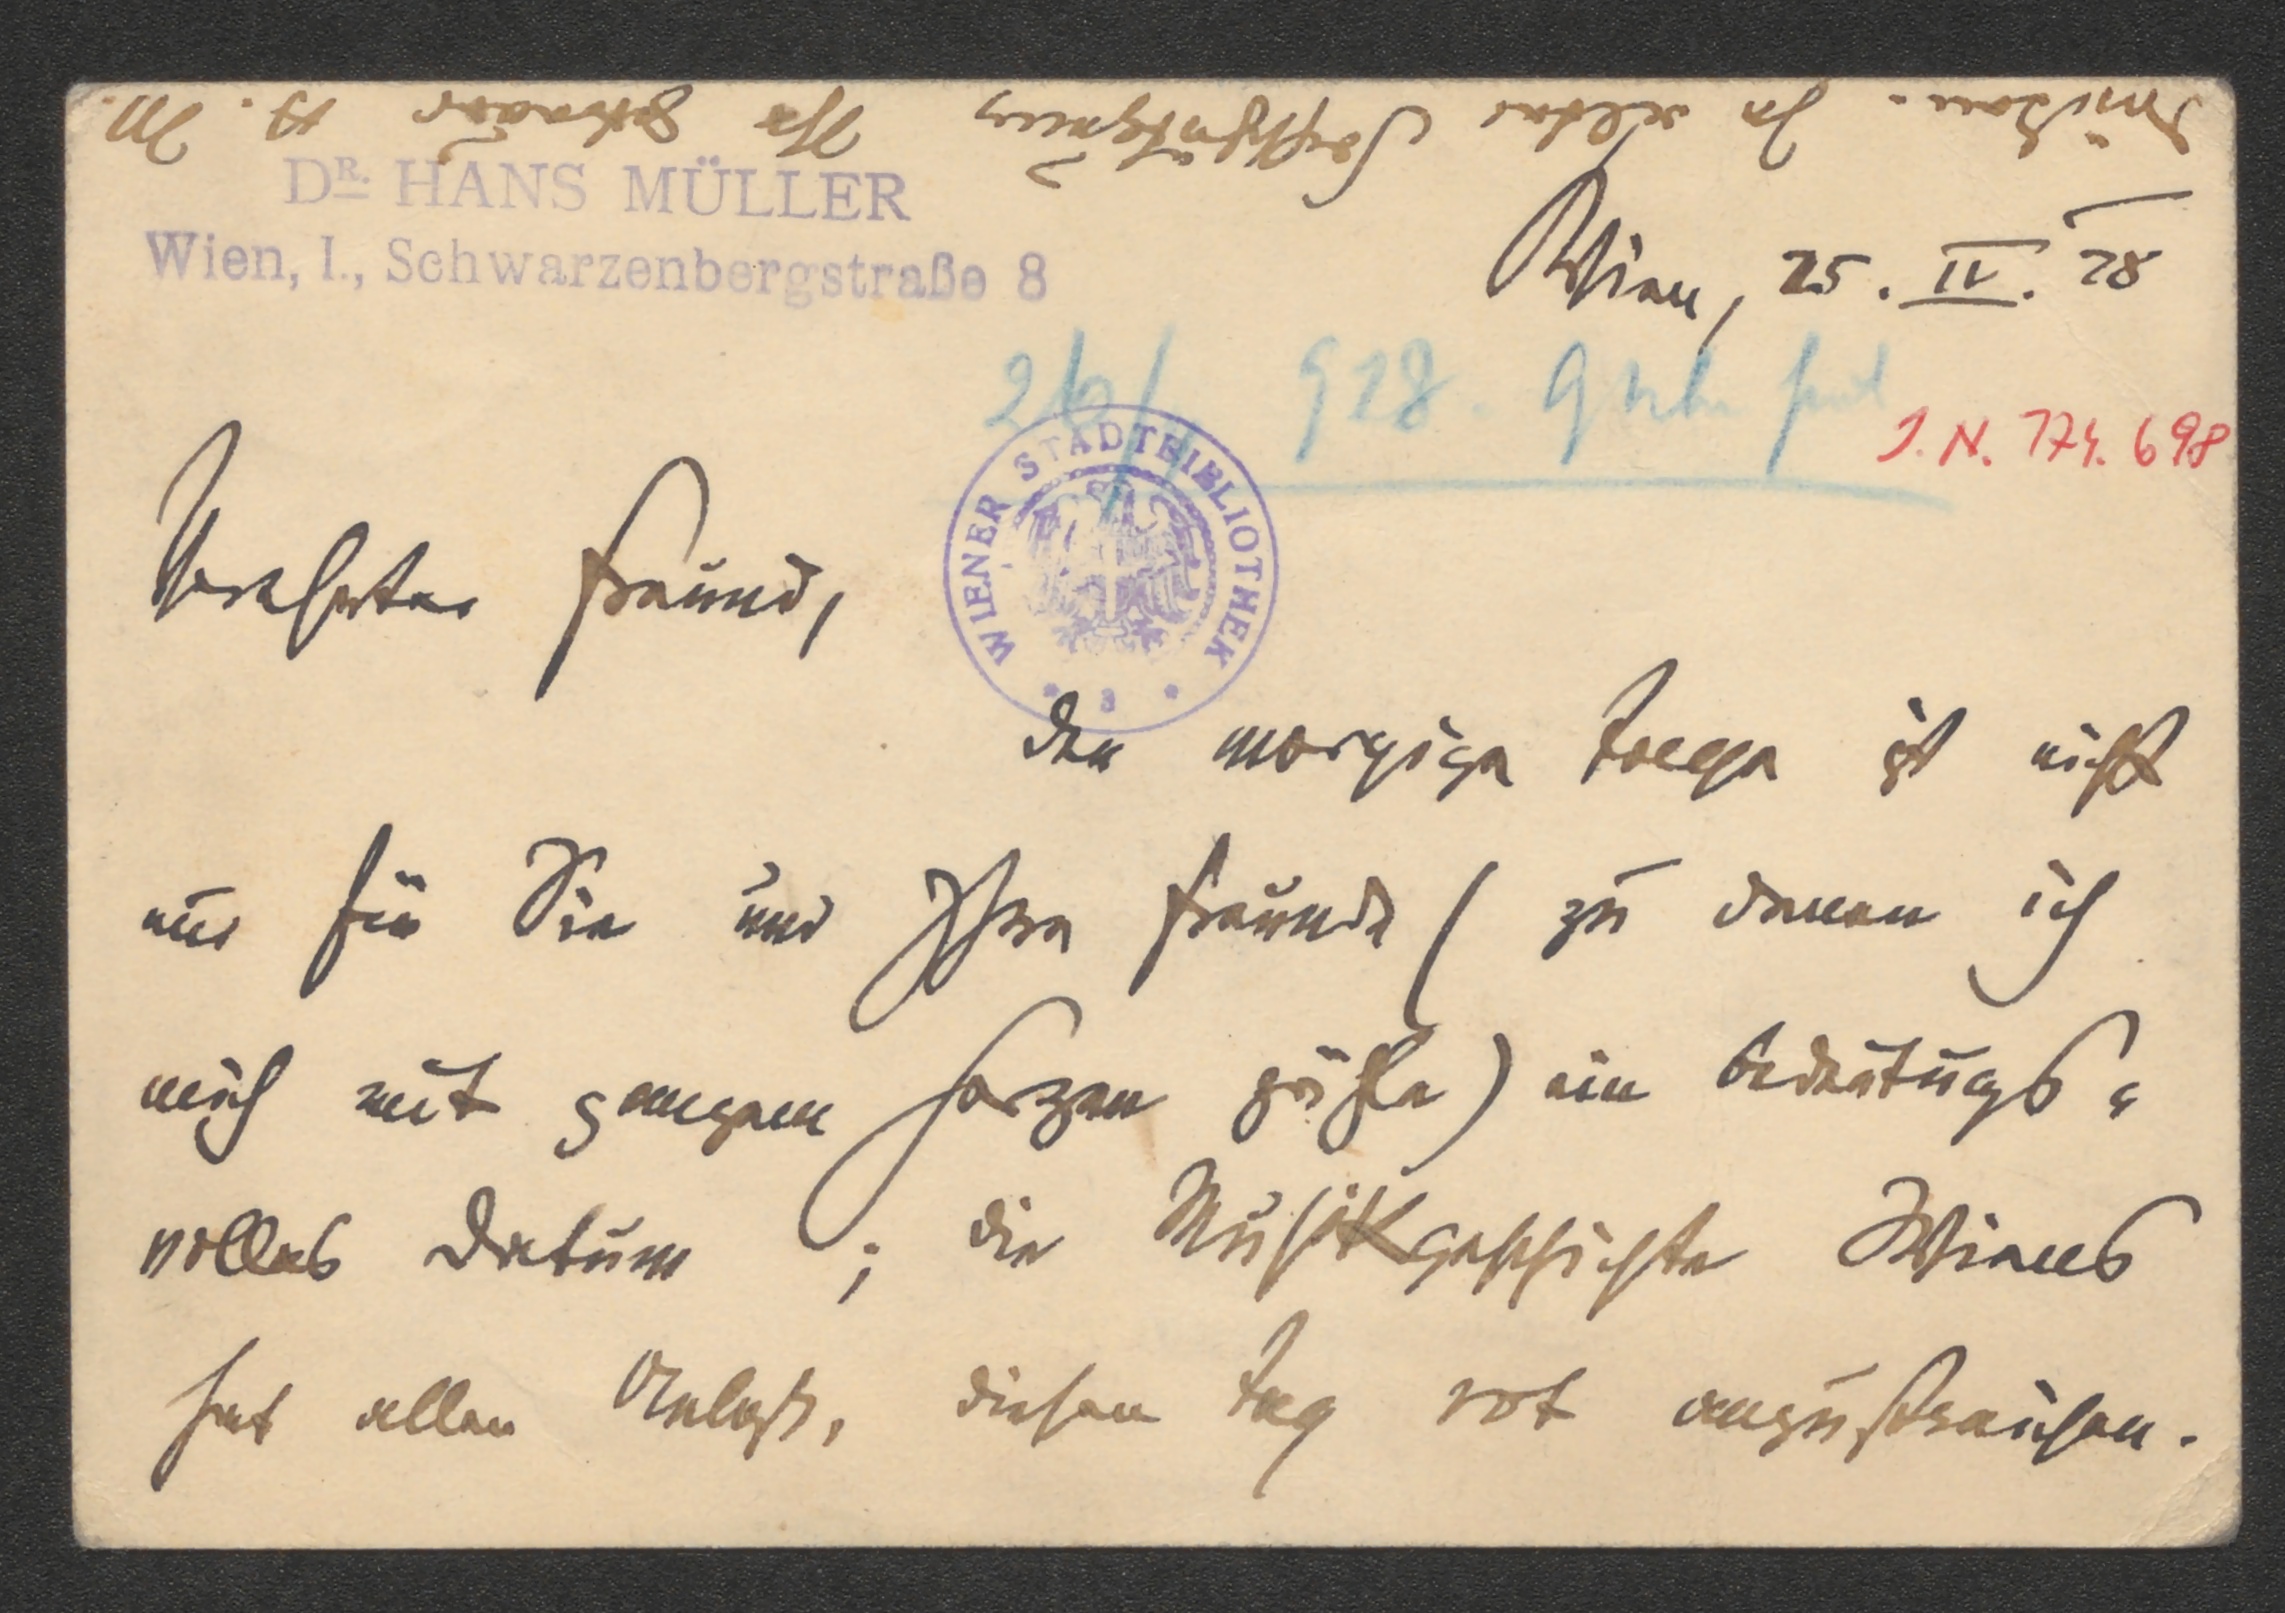 In alter Hochschätzung Ihr H. M.
DR. HANS MÜLLER
Wien, I., Schwarzenbergstraße 8
Wien, 25. IV. 28
928.
J. N. 174.698
WIENER STADTBIBLIOTHEK
Verehrter Freund,
der morgige Tag ist nicht
nur für Sie und Ihre Freunde (zu denen ich
mich mit ganzem Herzen zähle) ein bedeutungs-
volles Datum; die Musikgeschichte Wiens
hat allen Anlaß, diesen Tag rot anzustreichen.